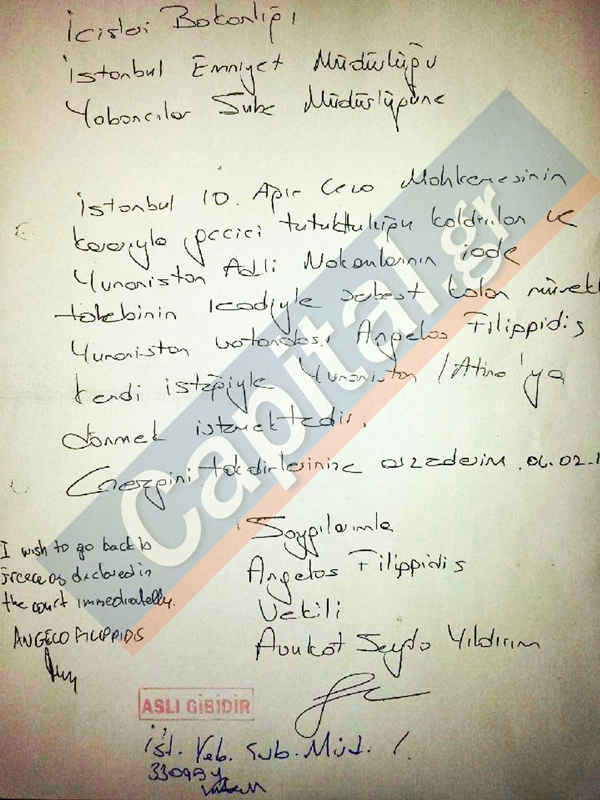 İçişleri Bakanlığı
İstanbul Emniyet Müdürlüğü
Yabancılar Şube Müdürlüğüne
İstanbul 10. Ağır Ceza Mahkemesinin
kararıyla geçici tutukluluğu kaldırılan ve
Yunanistan Adli Makamlarının iade
talebinin reddiyle serbest kalan
Yunanistan vatandaşı Angelos Filippidis
kendi isteğiyle Yunanistan / Atina'ya
dönmek istemektedir.
Gereğini takdirlerinize arzederim. 06.02.
Saygılarımla
Angelos Filippidis
Vekili
Avukat Seyda Yıldırım
I wish to go back to
Greece as declared in
the court immediatelly.
ANGELO FILIPPIDIS
ASLI GİBİDİR
İst. Yab. Şub. Müd.
Capital.gr